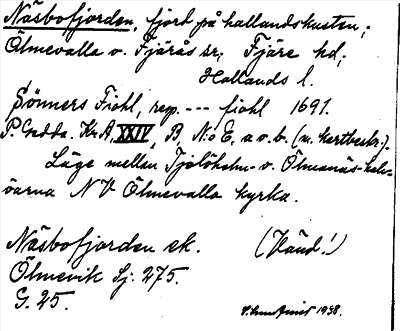 Näsbofjorden, fjord på hallandskusten;
Ölmevalla o. Fjärås sr, Fjäre hd;
Hallands l.
Sönners Fiohl, rep. --- fiohl 1691.
P. Gedda. Kr. A. XXIV, B, N:o E, a o. b. (m. kartbeskr.).
Läge mellan Tjolöholm- o. Ölmanäs-halv-
öarna NV Ölmevalla kyrka.
Näsbofjorden ek. (Händ!)
Ölmevik Sj. 275.
G. 25.
1938.